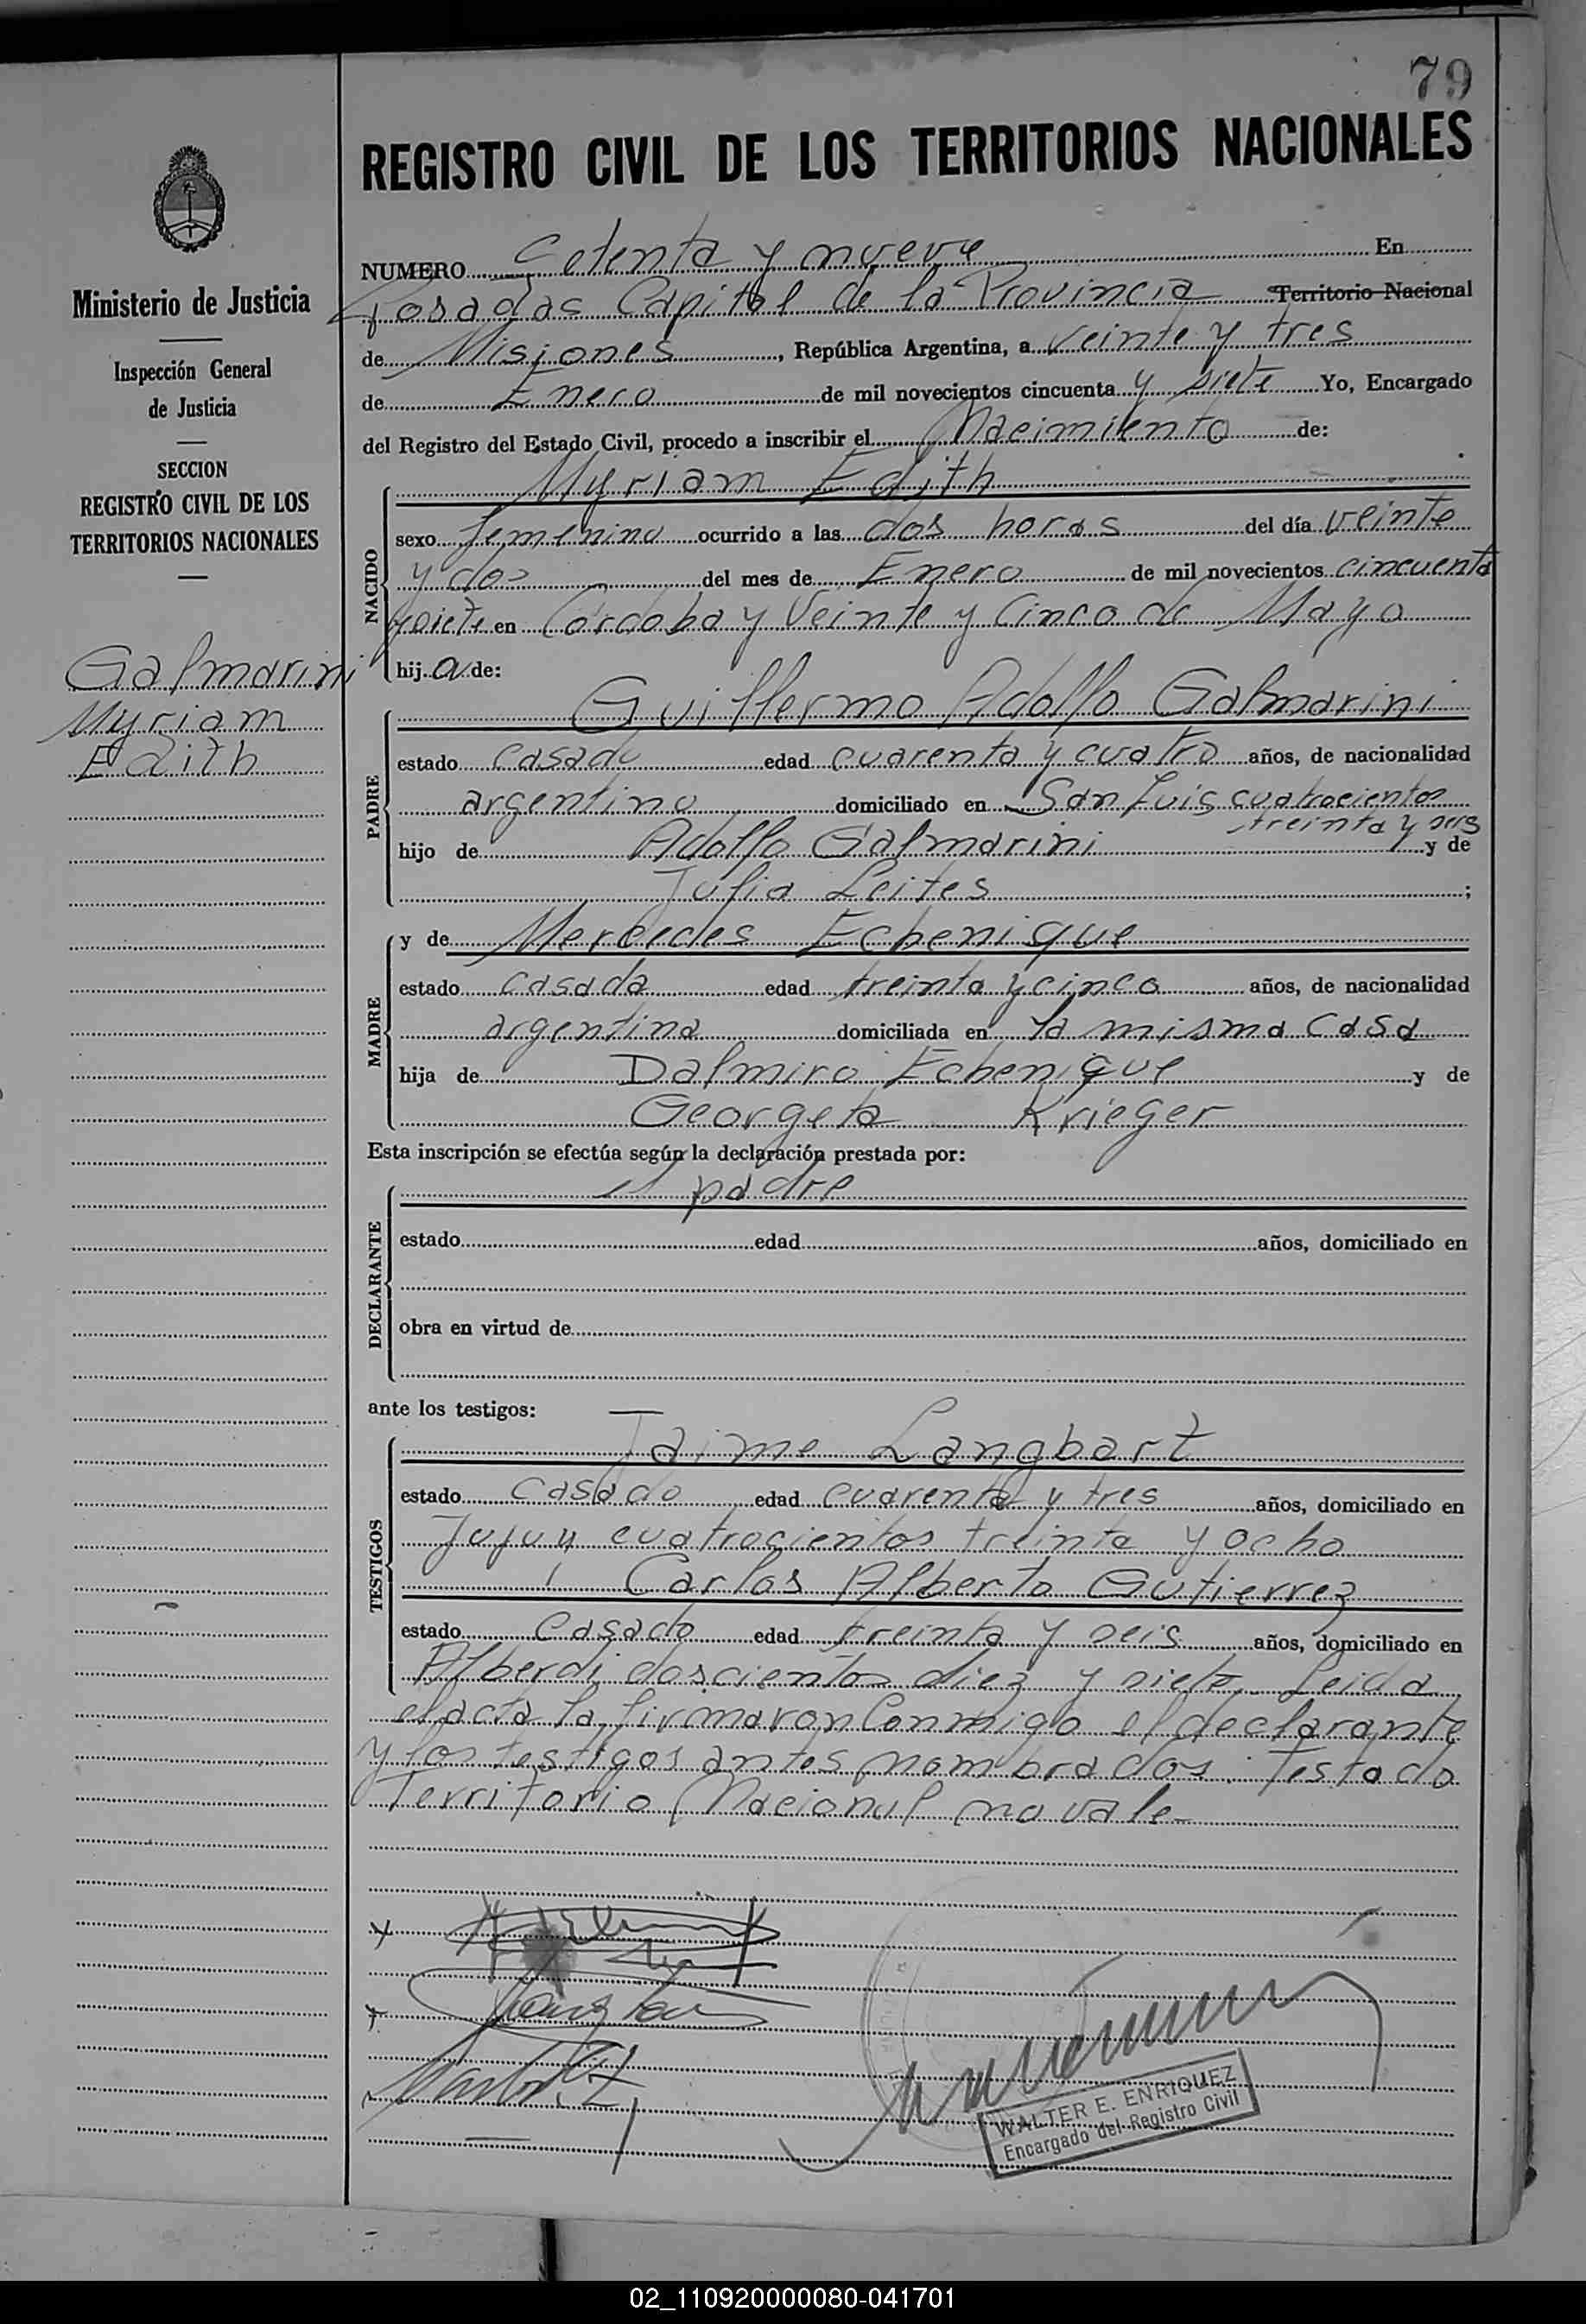 79
REGISTRO CIVIL DE LOS TERRITORIOS NACIONALES
Ministerio de Justicia
Inspección General
de Justicia
SECCION
REGISTRO CIVIL DE LOS
TERRITORIOS NACIONALES
Galmarini
Myriam
Edith
NUMERO Setenta y nueve En
Posadas Capital de la Provincia Territorio Nacional
de Misiones, República Argentina, a veinte y tres
de Enero de mil novecientos cincuenta y siete Yo, Encargado
del Registro del Estado Civil, procedo a inscribir el Nacimiento de:
NACIDO
Myriam Edith
sexo femenino ocurrido a las dos horas del día veinte
y dos del mes de Enero de mil novecientos cincuenta
y siete en Córdoba y Veinte y Cinco de Mayo
hija de:
PADRE
Guillermo Adolfo Galmarini
estado casado edad cuarenta y cuatro años, de nacionalidad
argentino domiciliado en San Luis cuatrocientos
treinta y seis
hijo de Adolfo Galmarini y de
Julia Leites;
MADRE
y de Mercedes Echenique
estado casada edad treinta y cinco años, de nacionalidad
argentina domiciliada en la misma casa
hija de Dalmiro Echenique y de
Georgeta Krieger
Esta inscripción se efectúa según la declaración prestada por:
DECLARANTE
el padre
estado edad años, domiciliado en
obra en virtud de
ante los testigos:
TESTIGOS
Jaime Langbart
estado casado edad cuarenta y tres años, domiciliado en
Jujuy cuatrocientos treinta y ocho
Carlos Alberto Gutierrez
estado casado edad treinta y seis años, domiciliado en
Alberdi doscientos diez y siete. Leida
el acta la firmaron Conmigo el declarante
y los testigos antes nombrados. Testado
Territorio Nacional no vale
WALTER E. ENRIQUEZ
Encargado del Registro Civil
02_110920000080-041701